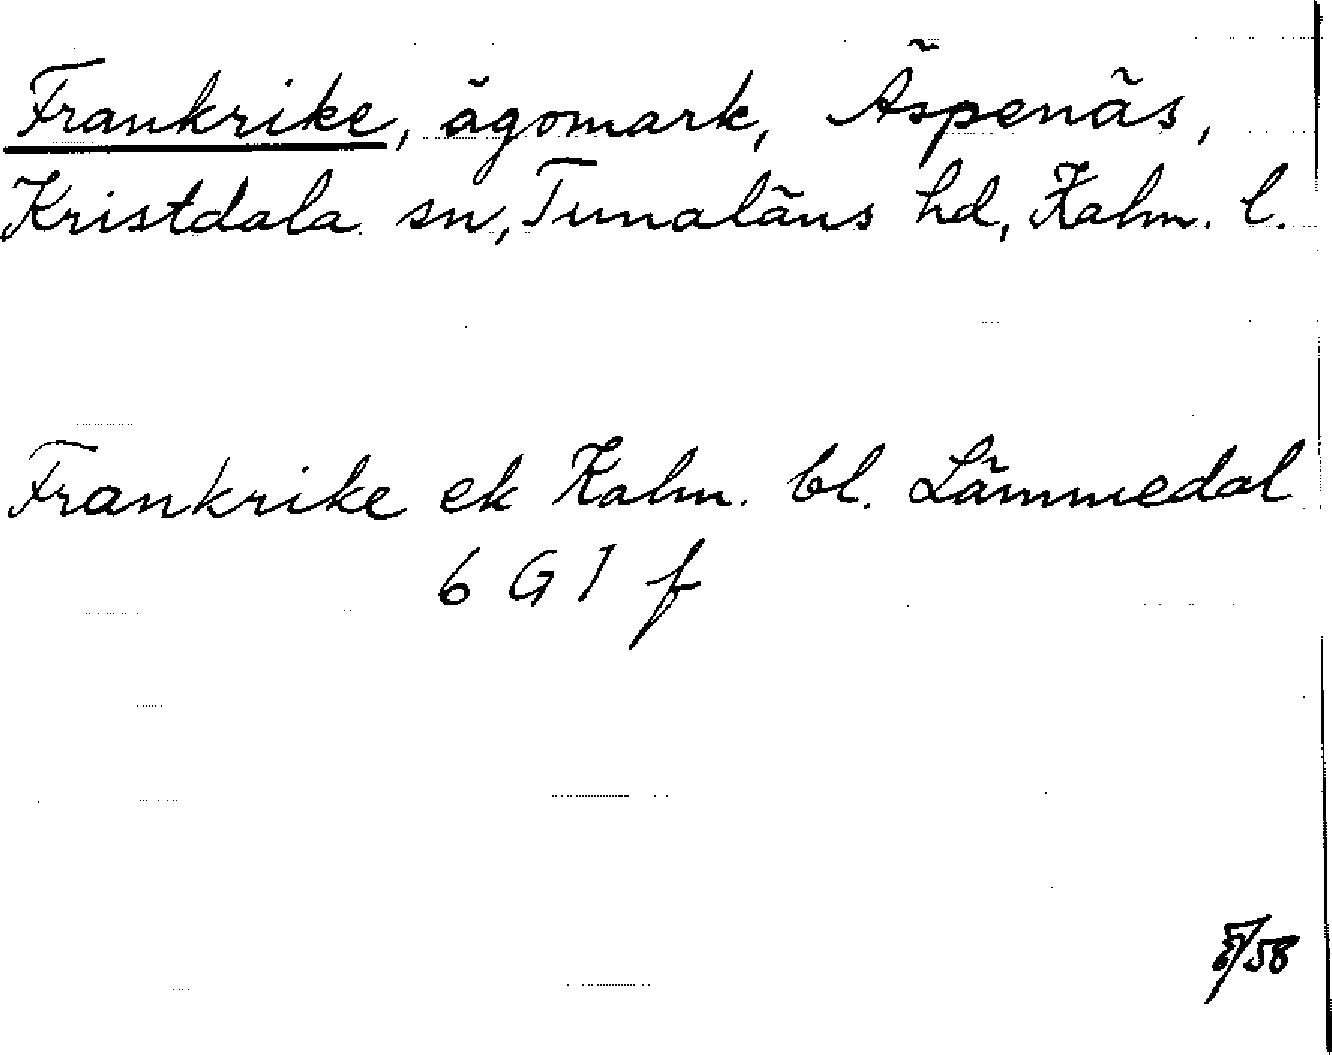 Frankrike, ägomark, Äspenäs,
Kristdala sn, Tunaläns hd, Kalm. l.
Frankrike ek Kalm. bl. Lämmedal
6 G 1 f
/58